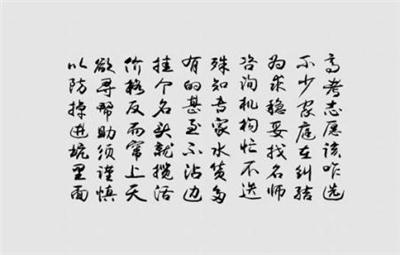 高考志愿该咋选
不少家庭在纠结
为求稳妥找名师
咨询机构忙不迭
殊知专家水货多
有的甚至不沾边
挂个名头就揽活
价格反而窜上天
欲寻帮助须谨慎
以防掉进坑里面